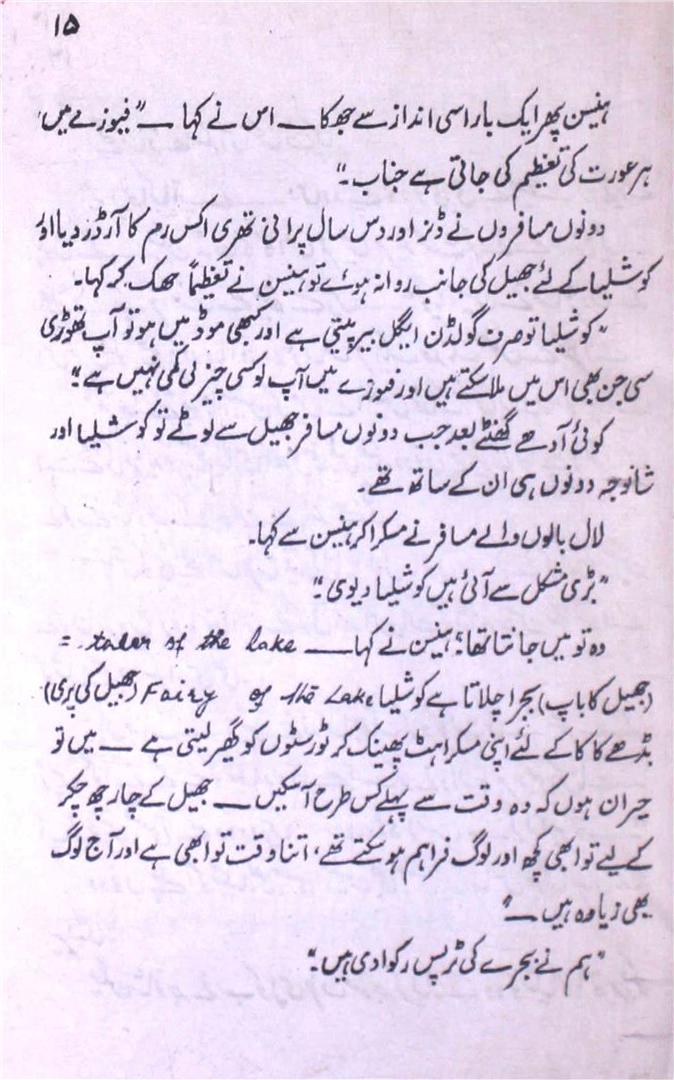 ۱۵
ہنیسن پھر ایک بار اسی انداز سے جھکا — اس نے کہا — "فیوزے میں
ہر عورت کی تعظیم کی جاتی ہے جناب۔"
دونوں مسافروں نے ڈنر اور دس سال پرانی تھری اکس رم کا آرڈر دیا اور
کوشلیا کے لئے جھیل کی جانب روانہ ہوئے تو ہنیسن نے تعظیماً جھک کر کہا۔
"کوشلیا تو صرف گولڈن ایگل بیر پیتی ہے اور کبھی موڈ میں ہو تو آپ تھوڑی
سی جن بھی اس میں ملا سکتے ہیں اور فیوزے میں آپ کو کسی چیز کی کمی نہیں ہے"۔
کوئی آدھے گھنٹے بعد جب دونوں مسافر جھیل سے لوٹے تو کوشلیا اور
شانوجہ دونوں ہی ان کے ساتھ تھے۔
لال بالوں والے مسافر نے مسکرا کر ہنیسن سے کہا۔
"بڑی مشکل سے آئی ہیں کوشلیا دیوی"۔
وہ تو میں جانتا تھا؛ ہنیسن نے کہا — talen of the lake =
(جھیل کا باپ) بجرا چلاتا ہے کوشلیا Fairy of the Lake (جھیل کی پری)
بڈھے کاکا کے لئے اپنی مسکراہٹ پھینک کر ٹورسٹوں کو گھیر لیتی ہے — میں تو
حیران ہوں کہ وہ وقت سے پہلے کس طرح آ سکیں — جھیل کے چار چھ چکر
کے لیے تو ابھی کچھ اور لوگ فراہم ہو سکتے تھے، اتنا وقت تو ابھی ہے اور آج لوگ
بھی زیادہ ہیں —"
"ہم نے بجرے کی ٹرپس رکوا دی ہیں"۔